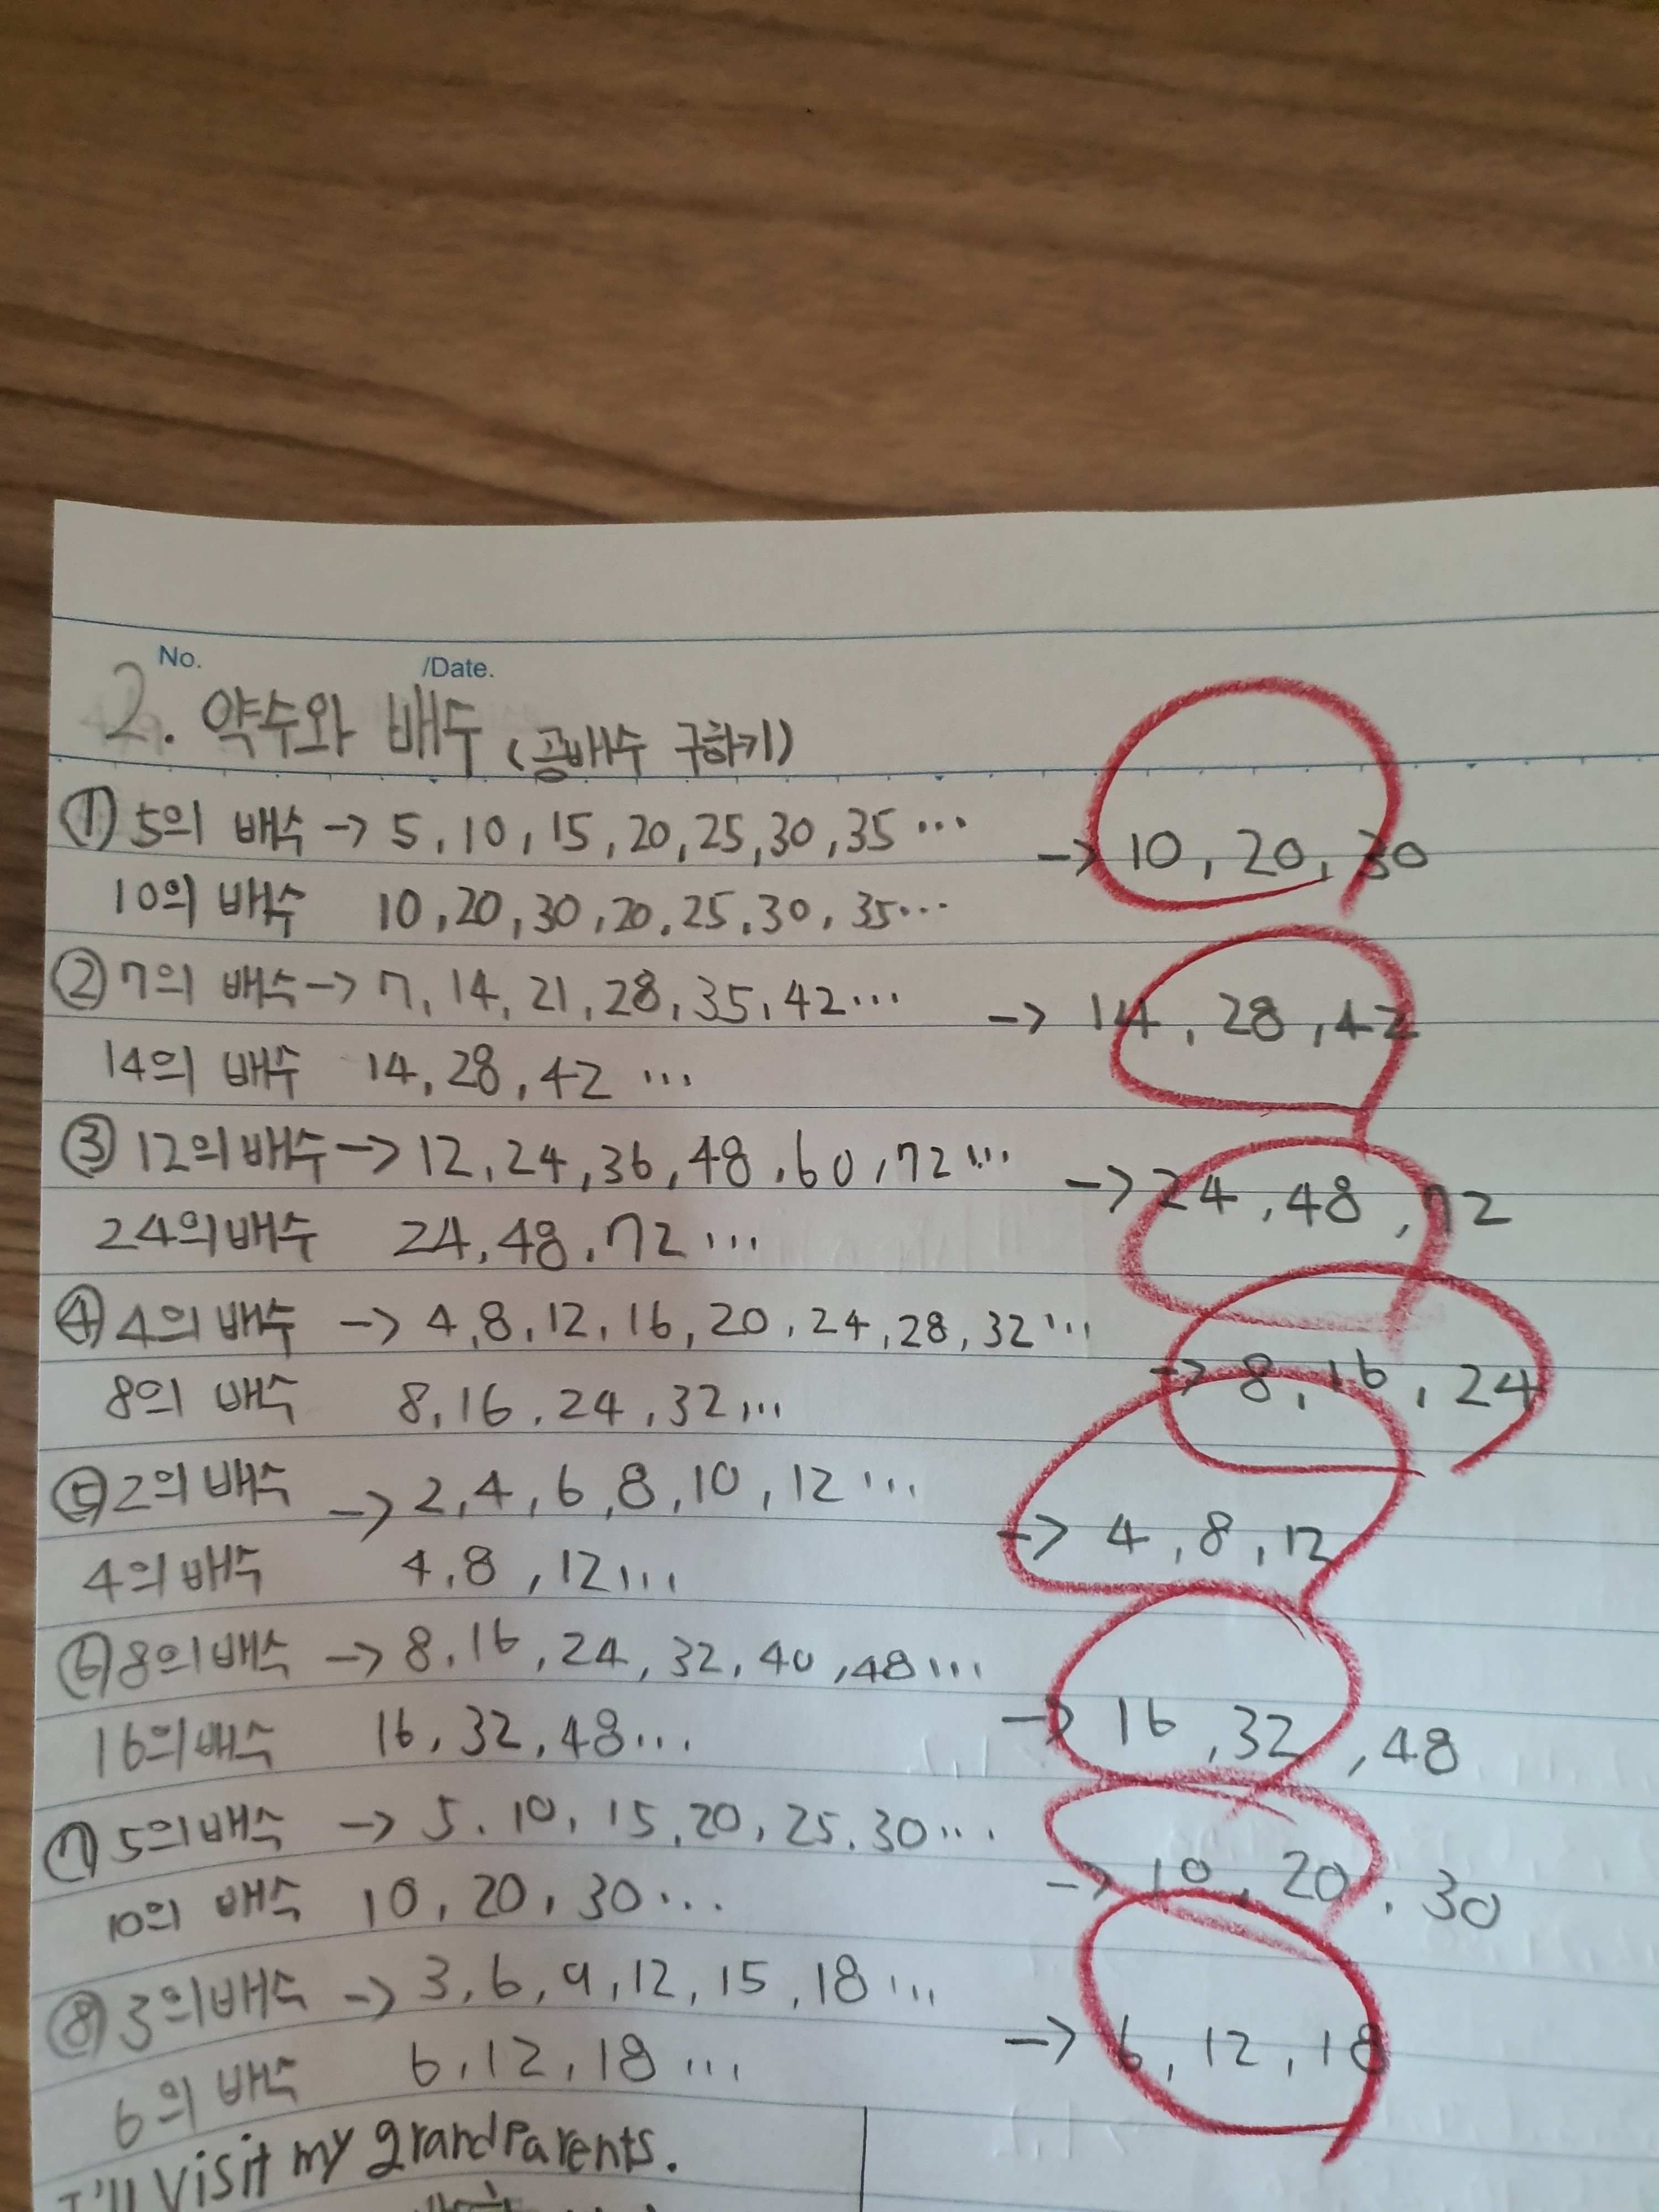 No. /Date.
2. 약수와 배수 (공배수 구하기)
① 5의 배수 -> 5, 10, 15, 20, 25, 30, 35 ... -> 10, 20, 30
10의 배수 10, 20, 30, 20, 25, 30, 35...
② 7의 배수 -> 7, 14, 21, 28, 35, 42... -> 14, 28, 42
14의 배수 14, 28, 42 ...
③ 12의 배수 -> 12, 24, 36, 48, 60, 72 ... -> 24, 48, 72
24의 배수 24, 48, 72 ...
④ 4의 배수 -> 4, 8, 12, 16, 20, 24, 28, 32 ... -> 8, 16, 24
8의 배수 8, 16, 24, 32 ...
⑤ 2의 배수 -> 2, 4, 6, 8, 10, 12 ... -> 4, 8, 12
4의 배수 4, 8, 12 ...
⑥ 8의 배수 -> 8, 16, 24, 32, 40, 48 ... -> 16, 32, 48
16의 배수 16, 32, 48 ...
⑦ 5의 배수 -> 5, 10, 15, 20, 25, 30 ... -> 10, 20, 30
10의 배수 10, 20, 30 ...
⑧ 3의 배수 -> 3, 6, 9, 12, 15, 18 ... -> 6, 12, 18
6의 배수 6, 12, 18 ...
I'll visit my grandparents.